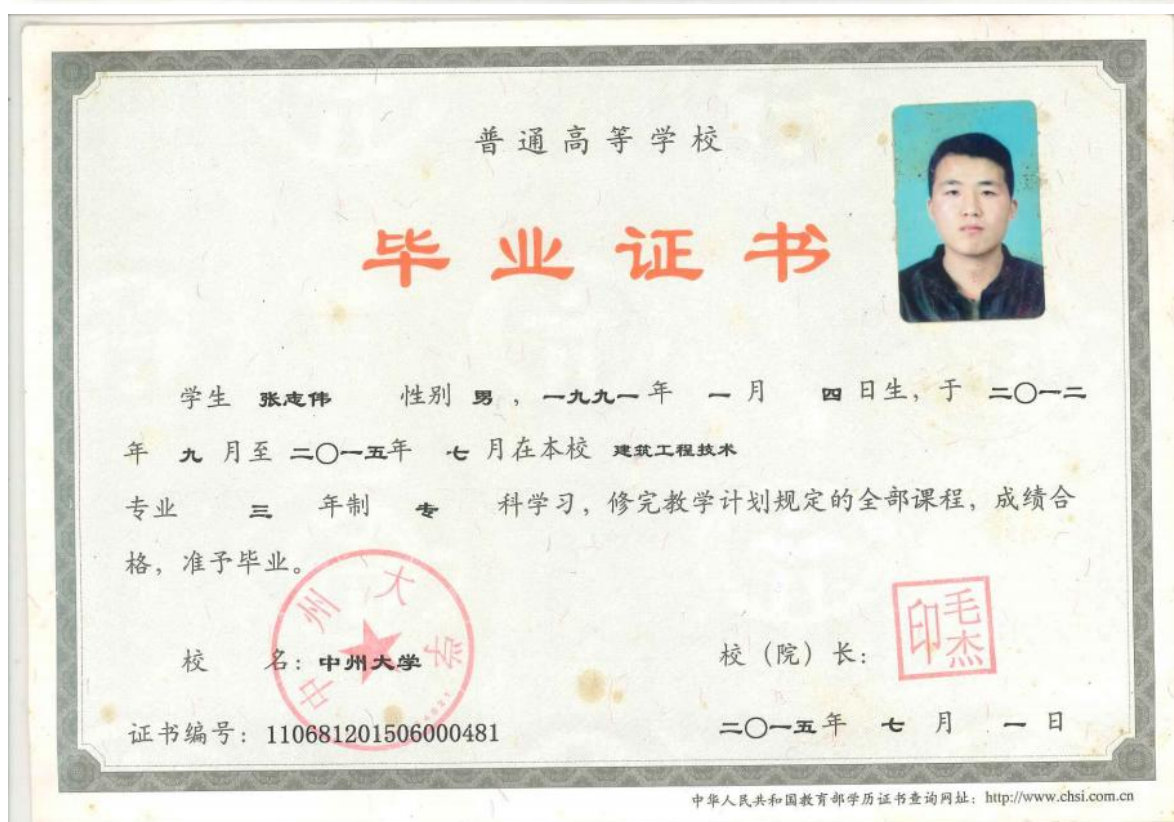 普通高等学校
毕业证书
学生 张志伟 性别 男，一九九一年 一月 四日生，于 二〇一二
年 九 月至 二〇一五年 七 月在本校 建筑工程技术
专业 三 年制 专 科学习，修完教学计划规定的全部课程，成绩合
格，准予毕业。
中州大学
校 名：中州大学
校（院）长：
毛杰印
证书编号：110681201506000481
二〇一五年 七 月 一 日
中华人民共和国教育部学历证书查询网址：http://www.chsi.com.cn